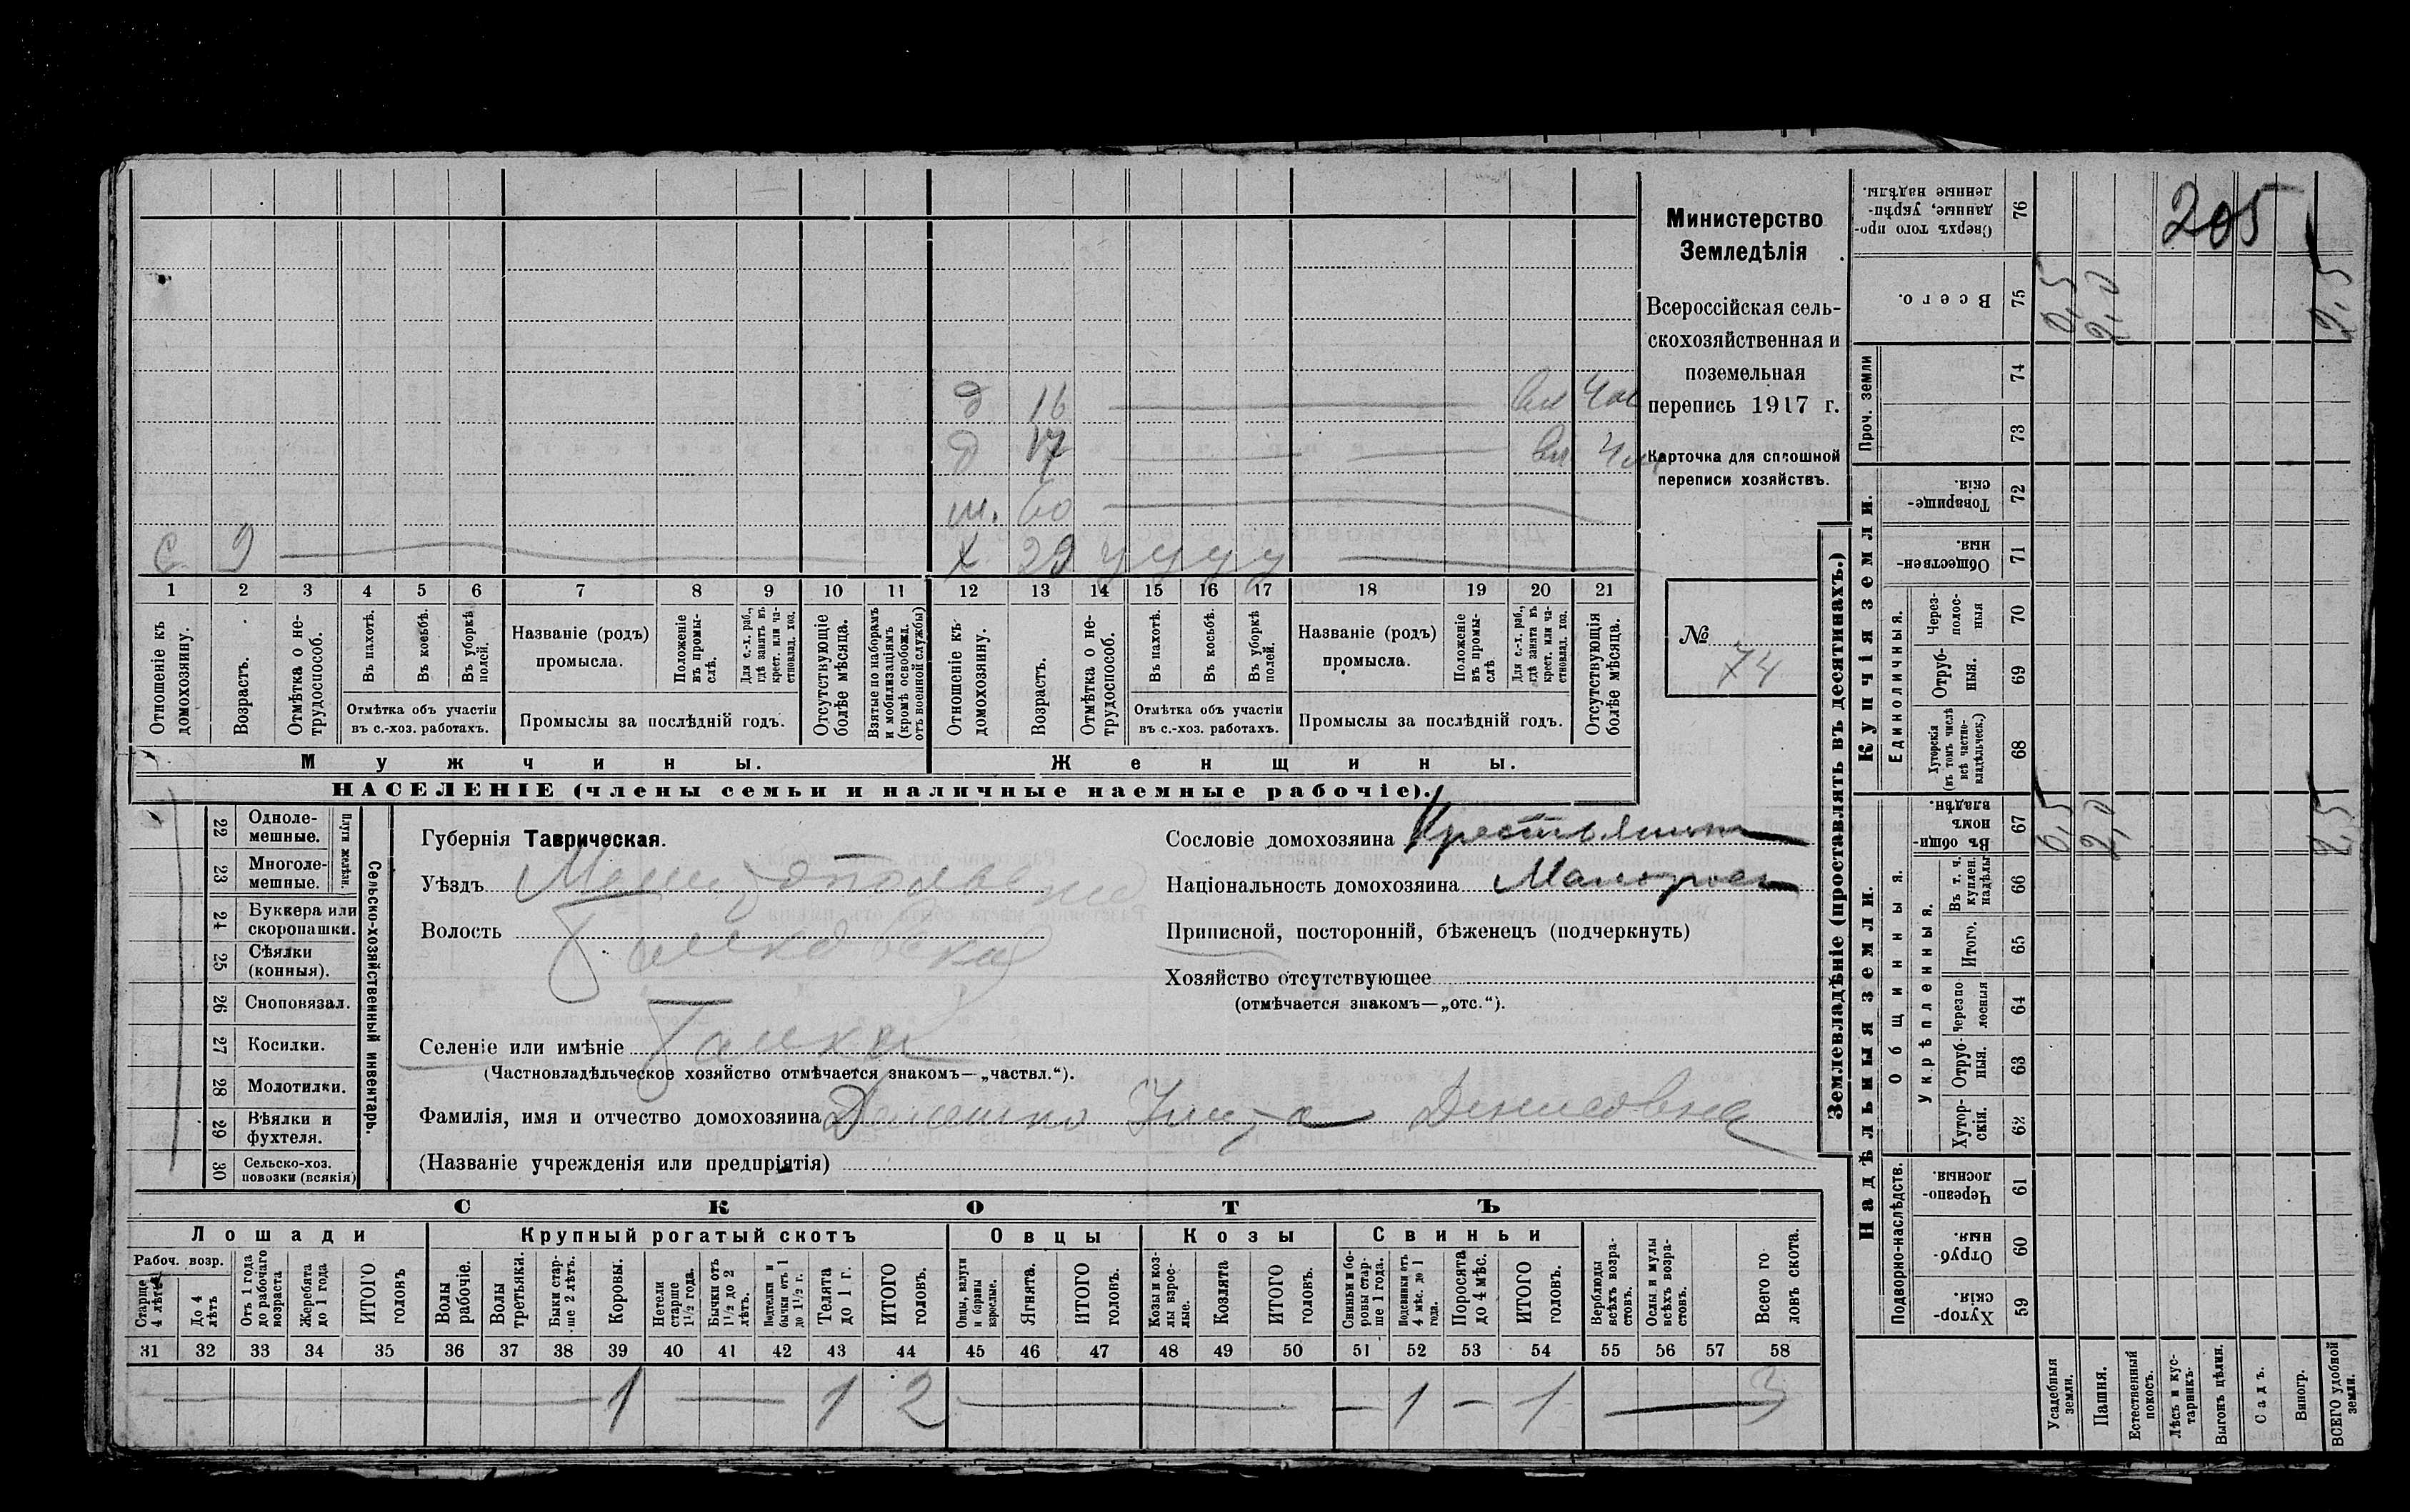 205
Министерство
Земледѣлія
Всероссійская сель-
скохозяйственная и
поземельная
перепись 1917 г.
Карточка для сплошной
переписи хозяйствъ.
№
74
д 16
д 17
м. 60
С 9
х 29 у у у у
1 2 3 4 5 6 7 8 9 10 11 12 13 14 15 16 17 18 19 20 21
Отношеніе къ домохозяину.
Возрастъ.
Отмѣтка о не-трудоспособ.
Въ пахотѣ.
Въ косьбѣ.
Въ уборкѣ полей.
Отмѣтка объ участіи
въ с.-хоз. работахъ.
Названіе (родъ)
промысла.
Положеніе въ промы-слѣ.
Для с.-х. раб., гдѣ занятъ въ крест. или ча-стновлад. хоз.
Промыслы за послѣдній годъ.
Отсутствующіе болѣе мѣсяца.
Взятые по наборамъ и мобилизаціямъ (кромѣ освобожд. отъ военной службы)
Отношеніе къ домохозяину.
Возрастъ.
Отмѣтка о не-трудоспособ.
Въ пахотѣ.
Въ косьбѣ.
Въ уборкѣ полей.
Отмѣтка объ участіи
въ с.-хоз. работахъ.
Названіе (родъ)
промысла.
Положеніе въ промы-слѣ
Для с.-х. раб., гдѣ занята въ крест. или ча-стновлад. хоз.
Промыслы за послѣдній годъ.
Отсутствующія болѣе мѣсяца.
Мужчины.
Женщины.
НАСЕЛЕНІЕ (члены семьи и наличные наемные рабочіе).
Сельско-хозяйственный инвентарь.
Плуги желѣзн.
22 Одноле-мешные.
23 Многоле-мешные.
24 Буккера или скоропашки.
25 Сѣялки (конныя).
26 Сноповязал.
27 Косилки.
28 Молотилки.
29 Вѣялки и фухтеля.
30 Сельско-хоз. повозки (всякія)
Губернія Таврическая.
Уѣздъ Мелитопольскій
Волость
Селеніе или имѣніе
(Частновладѣльческое хозяйство отмѣчается знакомъ—„частвл.“).
Фамилія, имя и отчество домохозяина Денисовна
(Названіе учрежденія или предпріятія)
Сословіе домохозяина Крестьянин
Національность домохозяина Малоросс
Приписной, посторонній, бѣженецъ (подчеркнуть)
Хозяйство отсутствующее
(отмѣчается знакомъ—„отс.“).
СКОТЪ
Лошади
Крупный рогатый скотъ
Овцы
Козы
Свиньи
Рабоч. возр.
Старше 4 лѣтъ
До 4 лѣтъ
Отъ 1 года до рабочаго возраста
Жеребята до 1 года
ИТОГО головъ
Волы рабочіе.
Волы третьяки.
Быки стар-ше 2 лѣтъ.
Коровы.
Нетели старше 1½ года.
Бычки отъ 1½ до 2 лѣтъ.
Подтелки и бычки отъ 1 до 1½ г.
Телята до 1 г.
ИТОГО головъ.
Овцы, валухи и бараны взрослые.
Ягнята.
ИТОГО головъ.
Козы и коз-лы взрос-лые.
Козлята
ИТОГО головъ.
Свиньи и бо-ровы стар-ше 1 года.
Подсвинки отъ 4 мѣс. до 1 года.
Поросята до 4 мѣс.
ИТОГО головъ.
Верблюды всѣхъ возра-стовъ.
Ослы и мулы всѣхъ возра-стовъ.
Всего го ловъ скота.
31 32 33 34 35 36 37 38 39 40 41 42 43 44 45 46 47 48 49 50 51 52 53 54 55 56 57 58
1 — 1 2 — 1 — 1 — 3
Землевладѣніе (проставлять въ десятинахъ.)
Надѣльныя земли.
Купчія земли.
Проч. земли
Подворно-наслѣдств.
Общинныя.
Укрѣпленныя.
Единоличныя.
59 Хутор-скія.
60 Отруб-ныя.
61 Черезпо-лосныя.
62 Хутор-скія.
63 Отруб-ныя.
64 Черезпо-лосныя
65 Итого.
66 Въ т. ч. куплен. надѣлы
67 Въ общин-номъ владѣн.
68 Хуторскія (въ томъ числѣ всѣ частно-владѣльческ.)
69 Отруб-ныя.
70 Через-полос-ныя
71 Обществен-ныя
72 Товарище-скія.
73
74
75 Всего.
76 Сверхъ того про-данные, укрѣп-ленные надѣлы.
Усадебныя земли.
Пашня.
Естественный покосъ.
Лѣсъ и кус-тарникъ.
Выгонъ цѣлин.
Садъ.
Виногр.
ВСЕГО удобной земли.
0,5 2,0 2,5
0,5 2,0 2,5